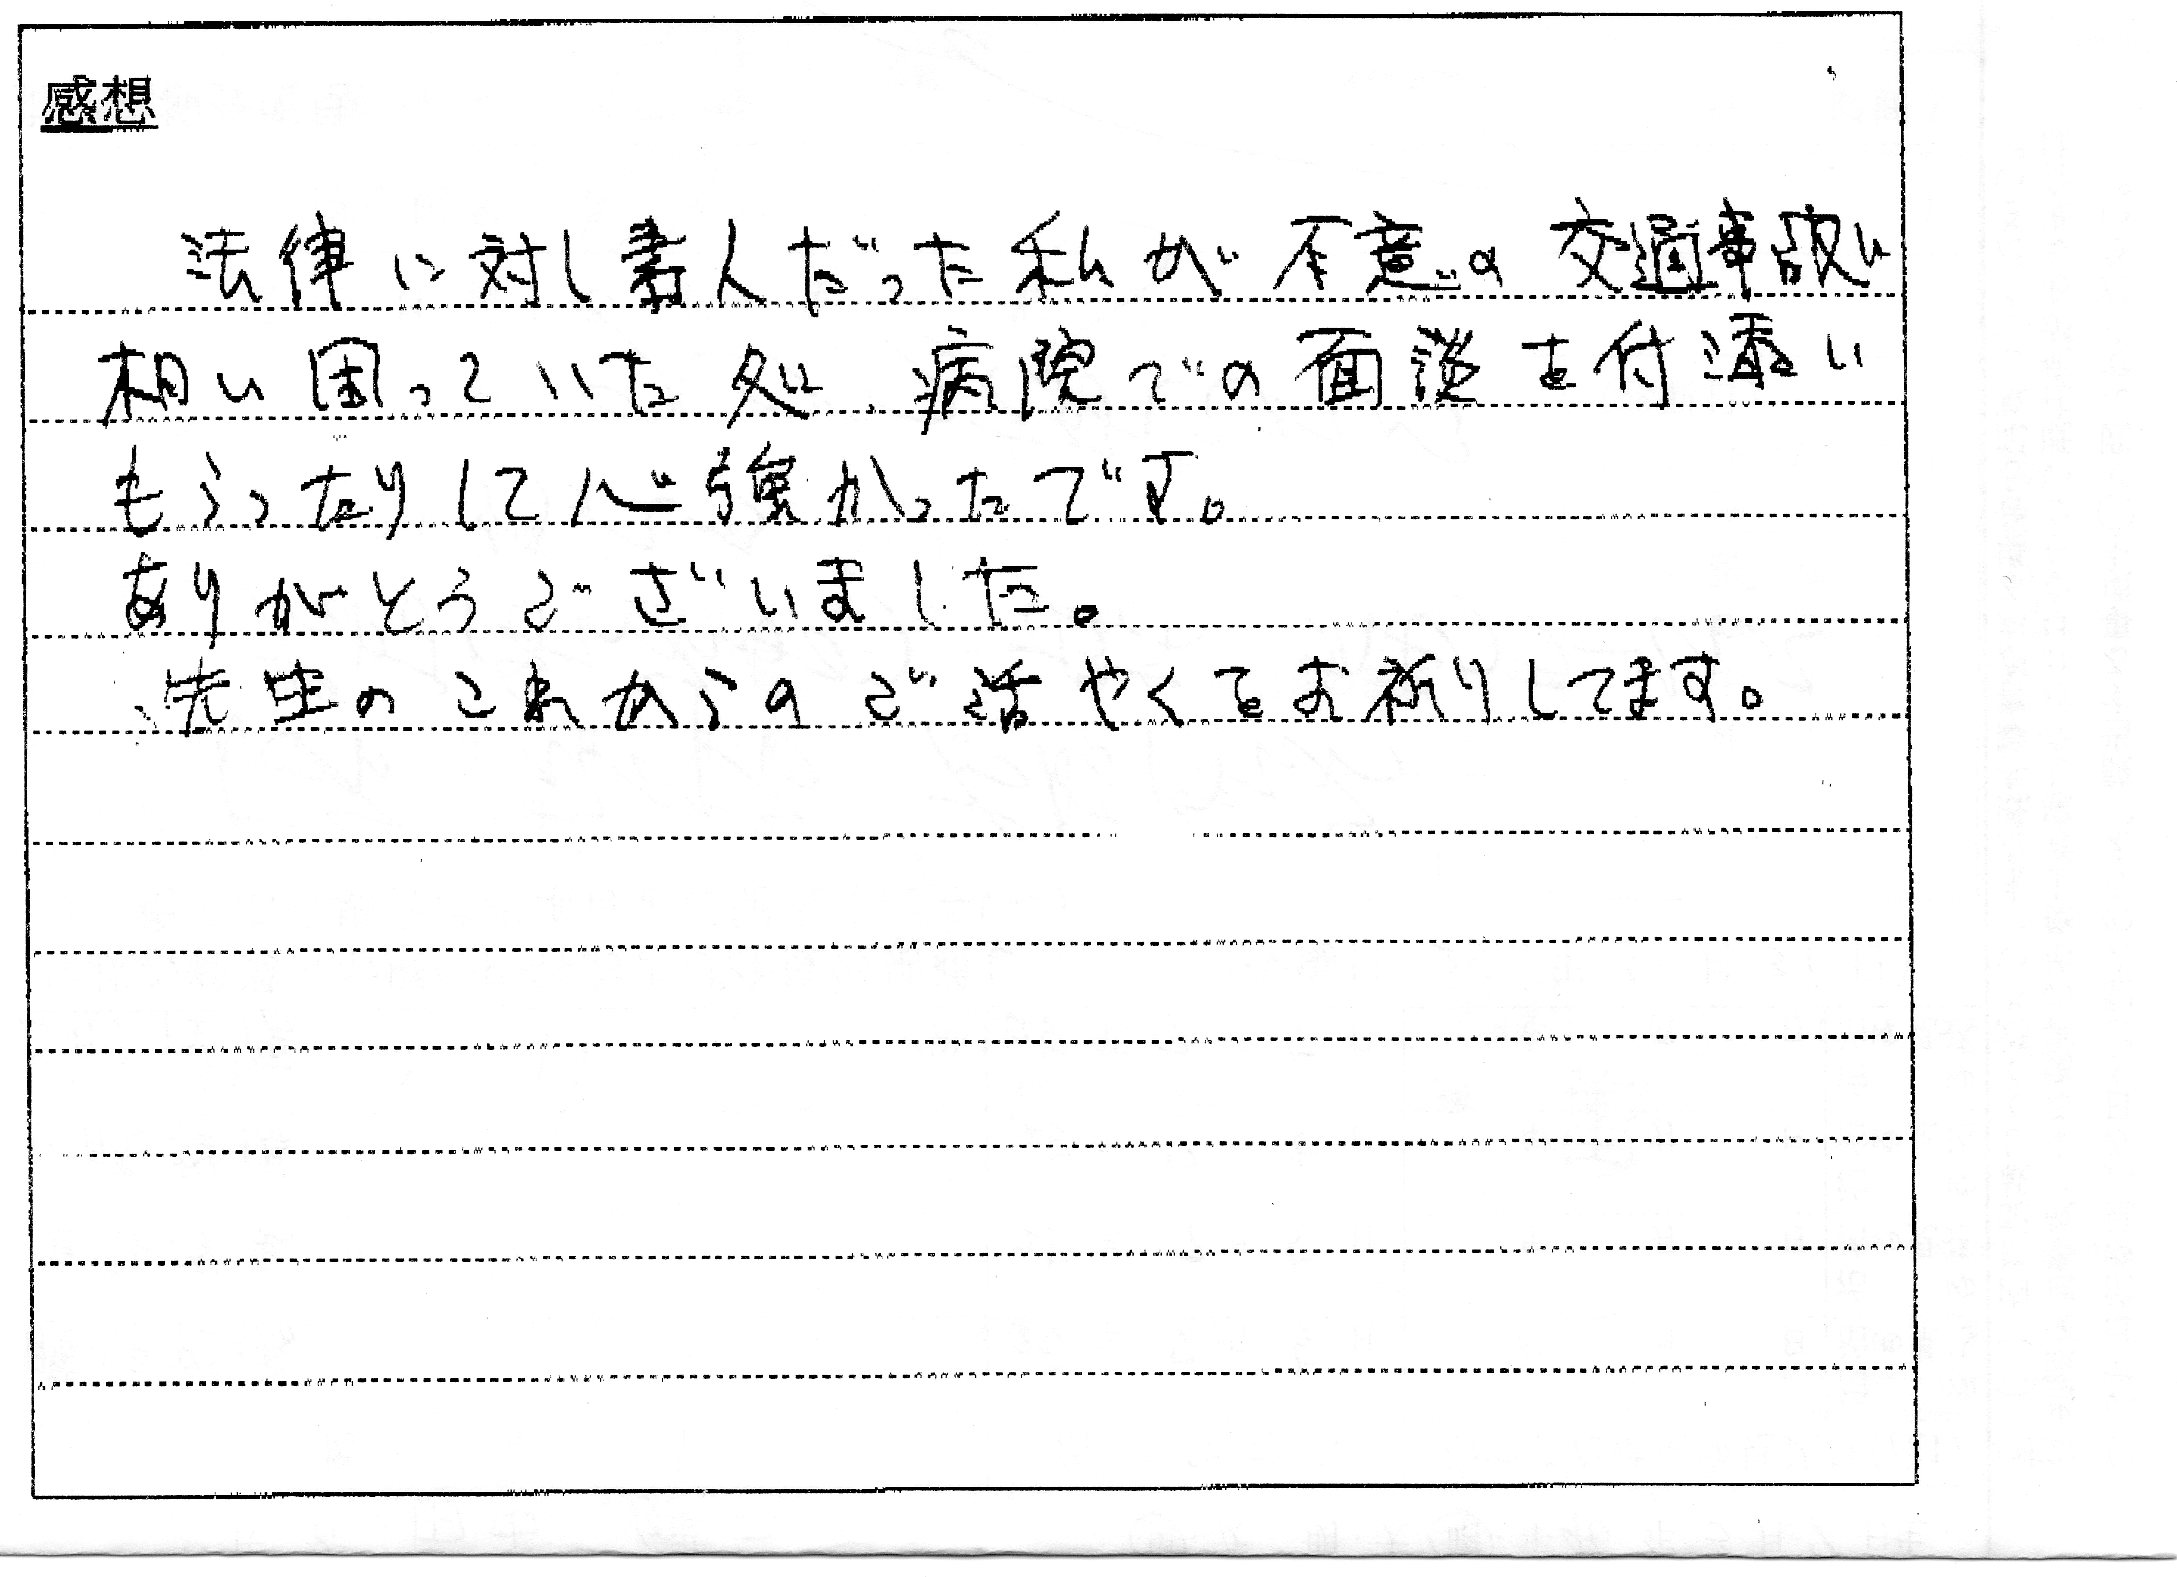 感想
法律に対し素人だった私が不意の交通事故に
相い困っていた処、病院での面談を付添い
もらったりして心強かったです。
ありがとうございました。
先生のこれからのご活やくをお祈りしてます。